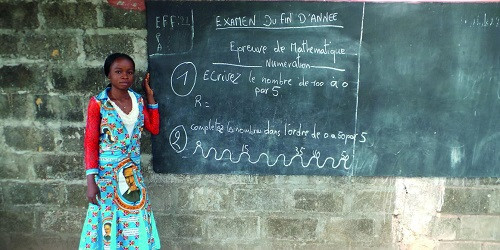 EXAMEN DU FIN D'ANNEE
Epreuve de Mathematique
Numeration
1 Ecrivez le nombre de 100 à 0
par 5
R =
2 completez les nombres dans l'ordre de 0 a 50 par 5
15 35 40